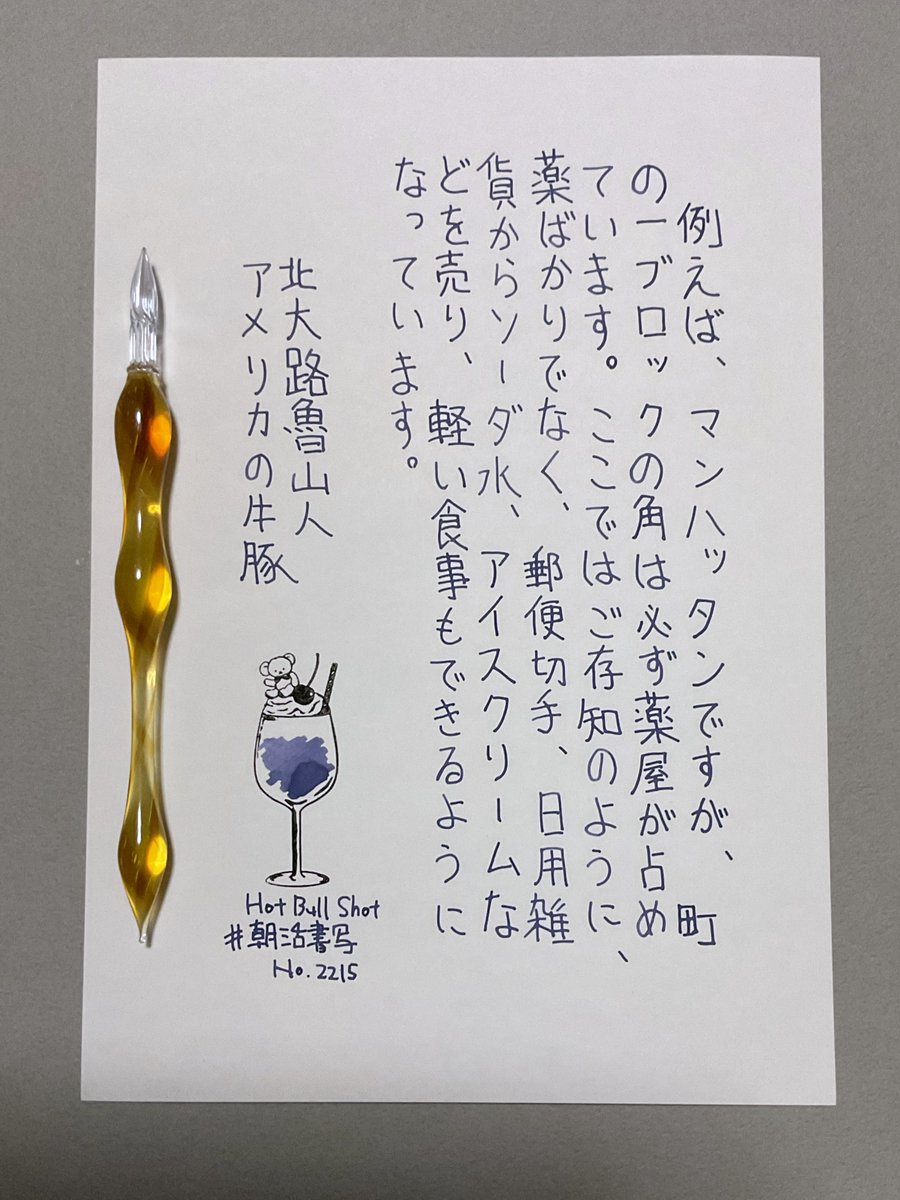 例えば、マンハッタンですが、町
の一ブロックの角は必ず薬屋が占め
ています。ここではご存知のように、
薬ばかりでなく、郵便切手、日用雑
貨からソーダ水、アイスクリームな
どを売り、軽い食事もできるように
なっています。
北大路魯山人
アメリカの牛豚
Hot Bull Shot
#朝活書写
No.2215